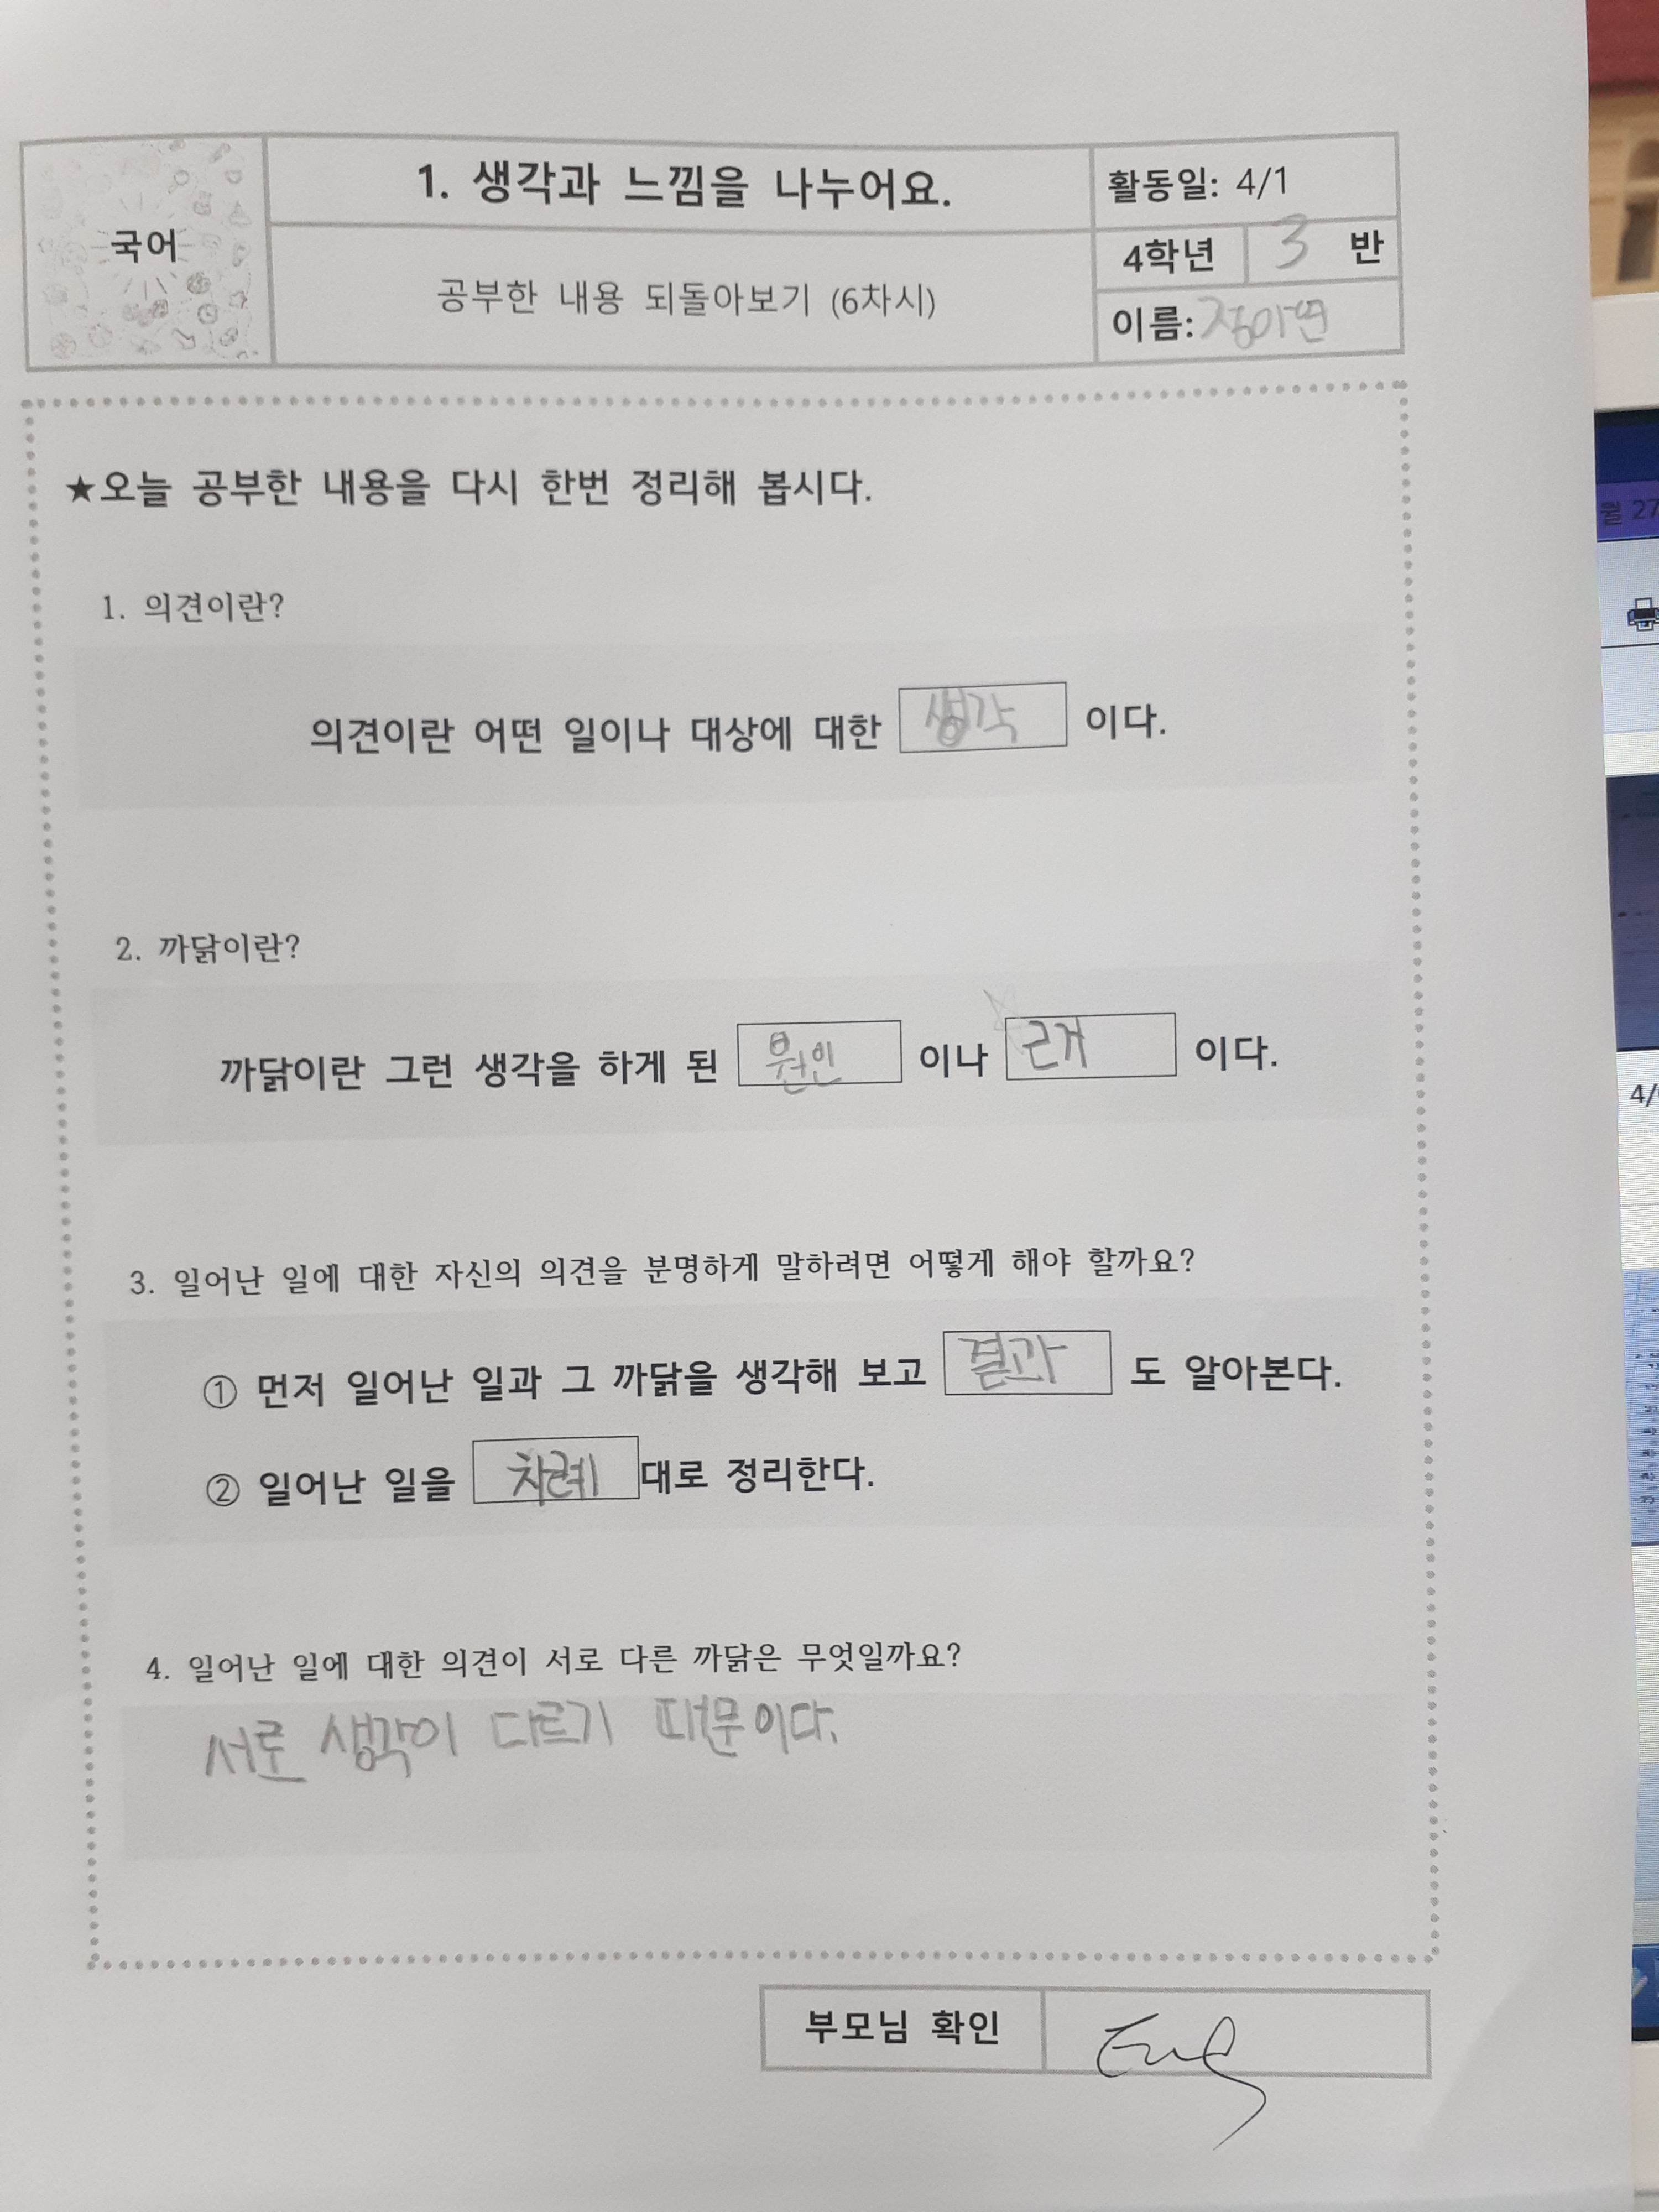 국어
1. 생각과 느낌을 나누어요.
공부한 내용 되돌아보기 (6차시)
활동일: 4/1
4학년 3 반
이름:
★오늘 공부한 내용을 다시 한번 정리해 봅시다.
1. 의견이란?
의견이란 어떤 일이나 대상에 대한 생각 이다.
2. 까닭이란?
까닭이란 그런 생각을 하게 된 원인 이나 근거 이다.
3. 일어난 일에 대한 자신의 의견을 분명하게 말하려면 어떻게 해야 할까요?
① 먼저 일어난 일과 그 까닭을 생각해 보고 결과 도 알아본다.
② 일어난 일을 차례 대로 정리한다.
4. 일어난 일에 대한 의견이 서로 다른 까닭은 무엇일까요?
서로 생각이 다르기 때문이다.
부모님 확인
월 27
4/